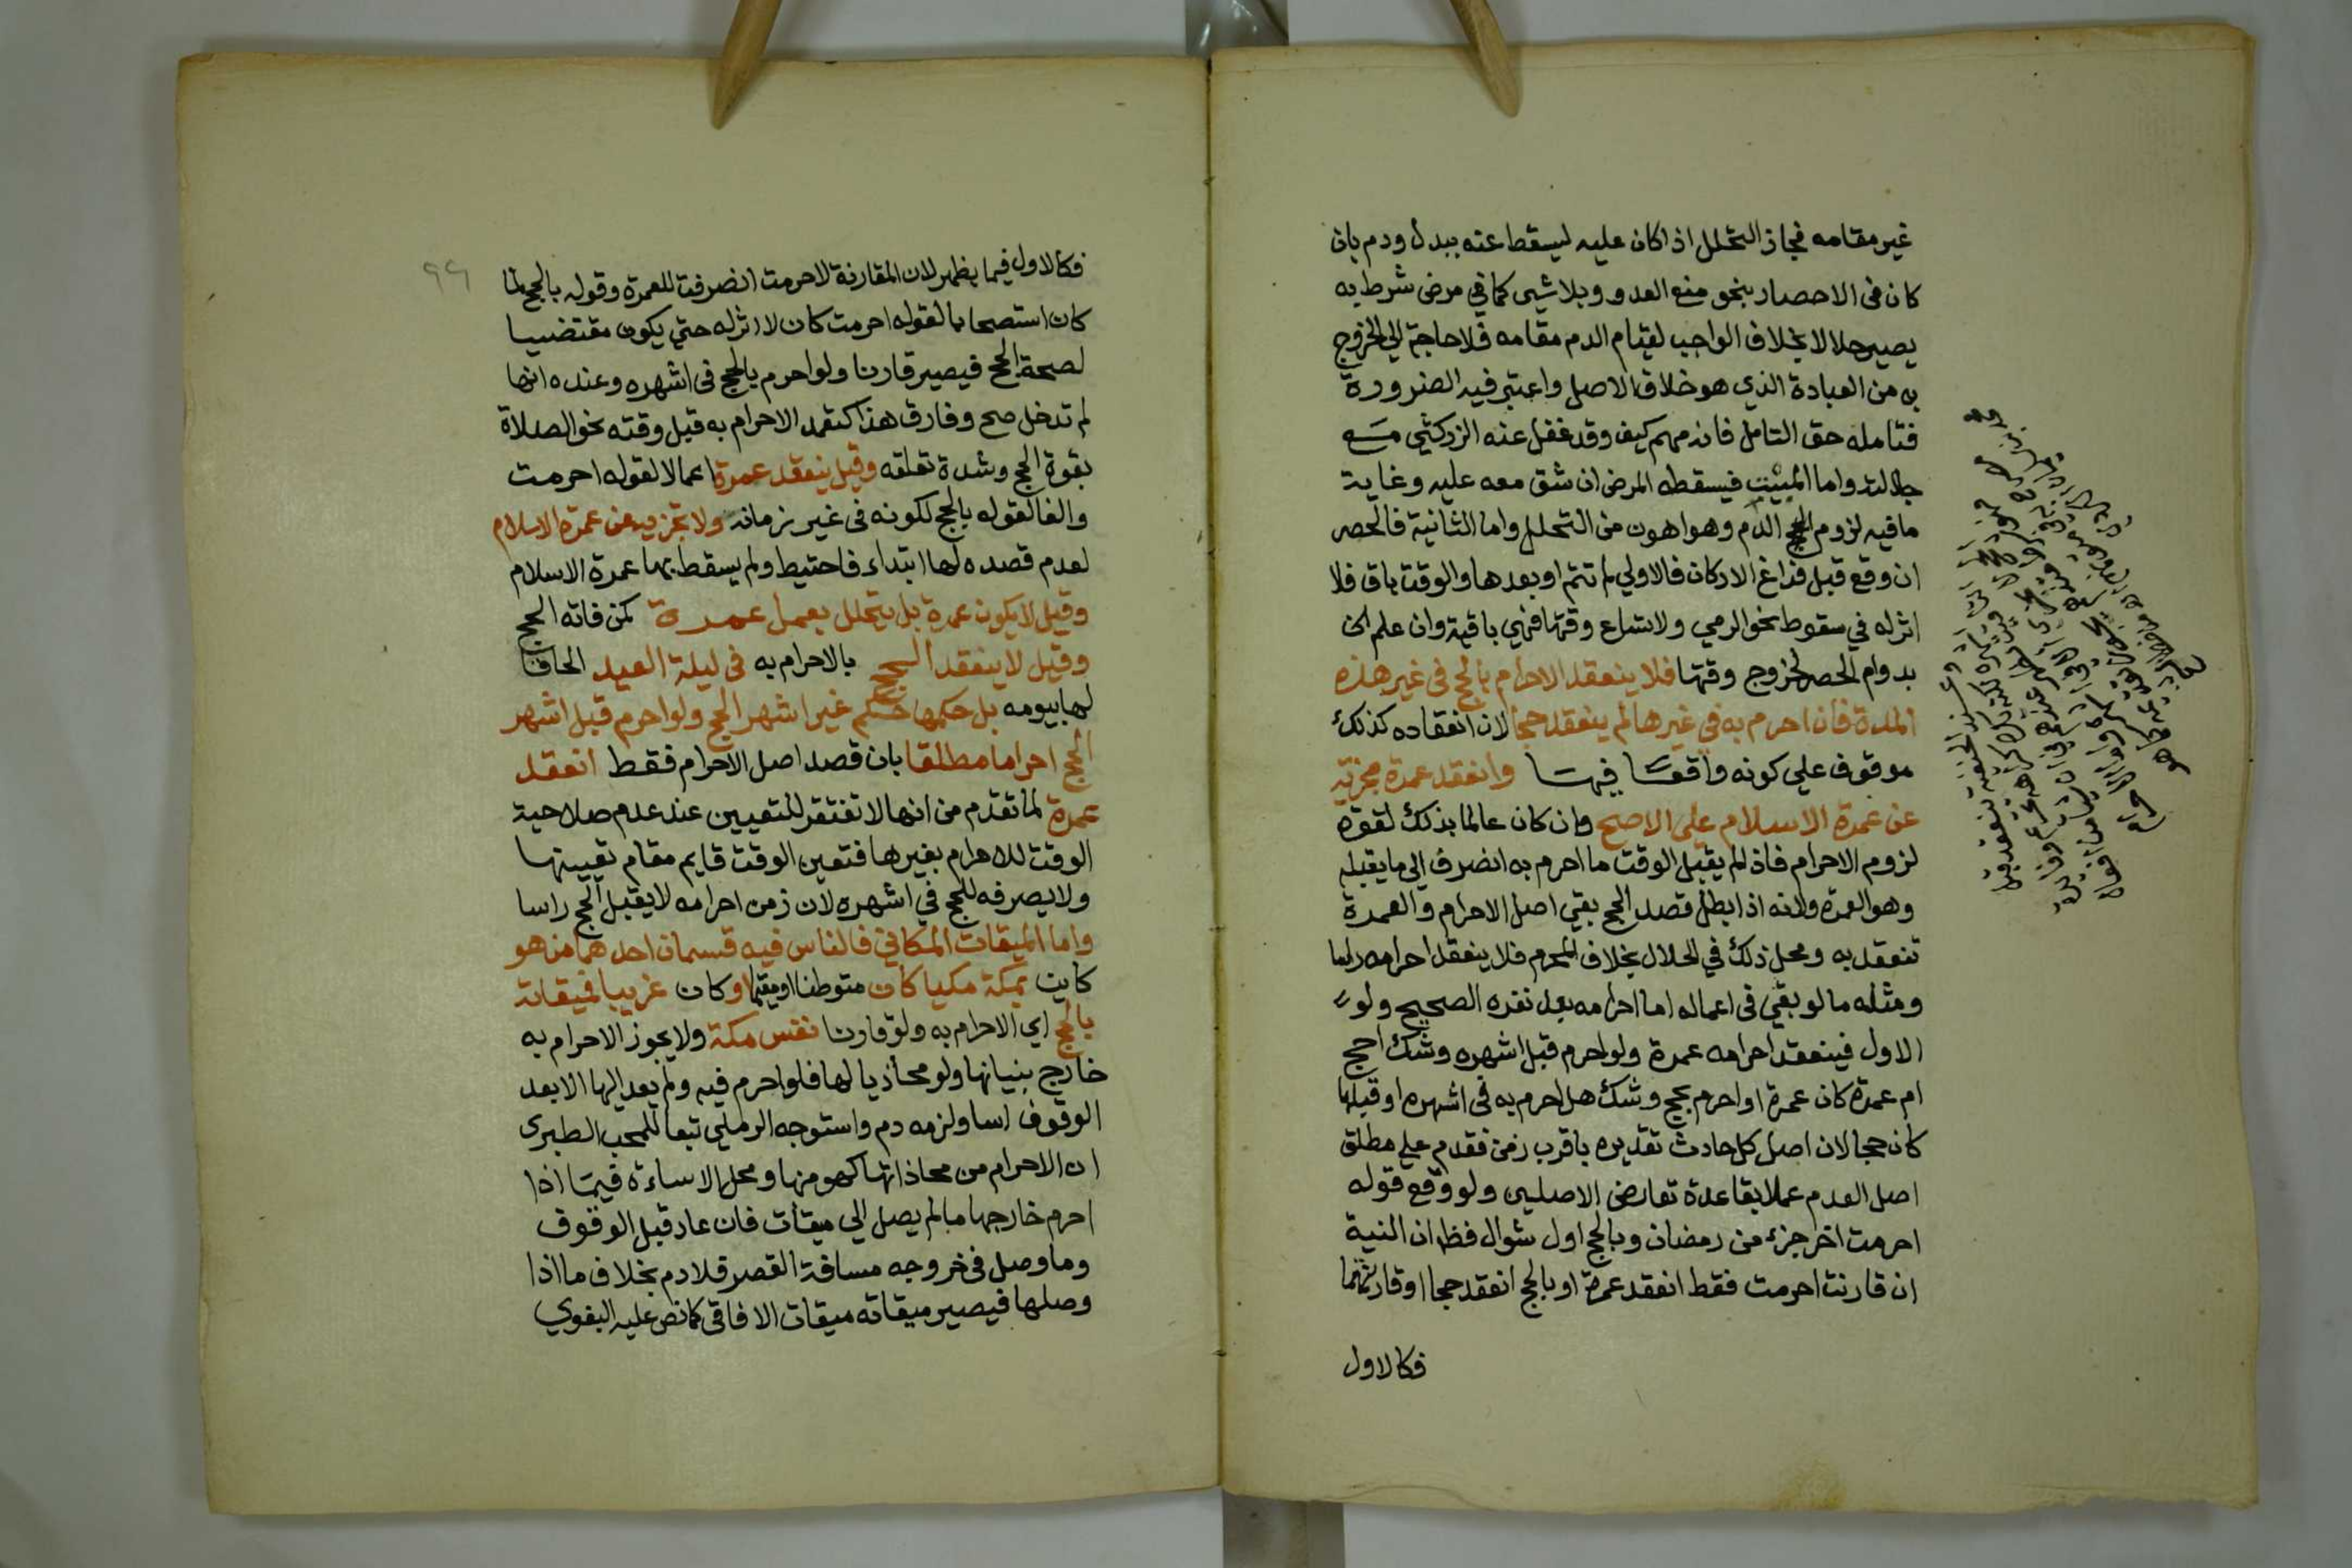 غير مقامه فجاز التحلل اذا كان عليه ليسقط عنه ببدل ودم بان
كان في الاحصار بنحو منع العدو وبلا شي كما في مرض شرط به
يصير حلالا بخلاف الواجب لقيام الدم مقامه فلا حاجة الي الخروج
به من العبادة الذي هو خلاف الاصل واعتبر فيه الضرورة
فتامله حق التامل فانه مهم كيف وقد غفل عنه الزركشي مـع
جلالته واما المبيت فيسقطه المرض ان شق معه عليه وغاية
ما فيه لزوم الدم وهو اهون من التحلل واما الثانية فالحصر
ان وقع قبل فراغ الاركان فالاولي لم تتم او بعدها والوقت باق فلا
اثر له في سقوط نحو الرمي ولاتساع وقتها فهي باقية وان علم الان
بدوام الحصر لخروج وقتها فلا ينعقد الاحرام بالحج في غير هذه
المدة فان احرم به في غيرها لم ينعقد حجا لان انعقاده كذلك
موقوف علي كونه واقعا فيها وانعقد عمرة مجزئة
عن عمرة الاسلام علي الاصح وان كان عالما بذلك لقوة
لزوم الاحرام فاذا لم يقبل الوقت ما احرم به انصرف الي ما يقبله
وهو العمرة ولانه اذا بطل قصد الحج بقي اصل الاحرام والعمرة
تنعقد به ومحل ذلك في الحلال بخلاف المحرم فلا ينعقد احرامه راسا
ومثله ما لو بقي في اعماله اما احرامه بعد نفره الصحيح ولو
الاول فينعقد احرامه عمرة ولو احرم قبل اشهره وشك احج
ام عمرة كان عمرة او احرم بحج وشك هل احرم به في اشهره او قبلها
كان حجا لان اصل كل حادث تقديره باقرب زمن فقدم علي مطلق
اصل العدم عملا بقاعدة تعارض الاصلين ولو وقع قوله
احرمت اخر جزء من رمضان وبالحج اول شوال فظ ان النية
ان قارنت احرمت فقط انعقد عمرة او بالحج انعقد حجا او قارنتهما
فكالاول
٩٩
فكالاول فيما يظهر لان المقارنة لاحرمت انصرفت للعمرة وقوله بالحج لما
كان استصحابا لقوله احرمت كان لا اثر له حتي يكون مقتضيا
لصحة الحج فيصير قارنا ولو احرم بالحج في اشهره وعنده انها
لم تدخل صح وفارق هذا كتعمد الاحرام به قبل وقته نحو الصلاة
بقوة الحج وشدة تعلقه وقيل ينعقد عمرة اعمالا لقوله احرمت
والغا لقوله بالحج لكونه في غير زمانه ولا تجزيه عن عمرة الاسلام
لعدم قصده لها ابتداء فاحتيط ولم يسقط بها عمرة الاسلام
وقيل لا يكون عمرة بل يتحلل بعمل عمرة كمن فاته الحج
وقيل لا ينعقد الحج بالاحرام به في ليلة العيد الحاقا
لها بيومه بل حكمها حكم غير اشهر الحج ولو احرم قبل اشهر
الحج احراما مطلقا بان قصد اصل الاحرام فقط انعقد
عمرة لما تقدم من انها لا تفتقر للتعيين عند عدم صلاحية
الوقت للاحرام بغيرها فتعين الوقت قايم مقام تعيينها
ولا يصرفه للحج في اشهره لان زمن احرامه لا يقبل الحج راسا
واما الميقات المكاني فالناس فيه قسمان احدهما من هو
كاين بمكة مكيا كان متوطنا او مقيما او كان غريبا فميقاته
بالحج اي الاحرام به ولو قارنا نفس مكة ولا يجوز الاحرام به
خارج بنيانها ولو محاذيا لها فلو احرم فيه ولم يعد اليها الا بعد
الوقوف اسا ولزمه دم واستوجه الرملي تبعا للمحب الطبري
ان الاحرام من محاذاتها كهو منها ومحل الاساءة فيما اذا
احرم خارجها ما لم يصل الي ميقات فان عاد قبل الوقوف
وما وصل في خروجه مسافة القصر فلا دم بخلاف ما اذا
وصلها فيصير ميقاته ميقات الافاقي كما نص عليه البغوي